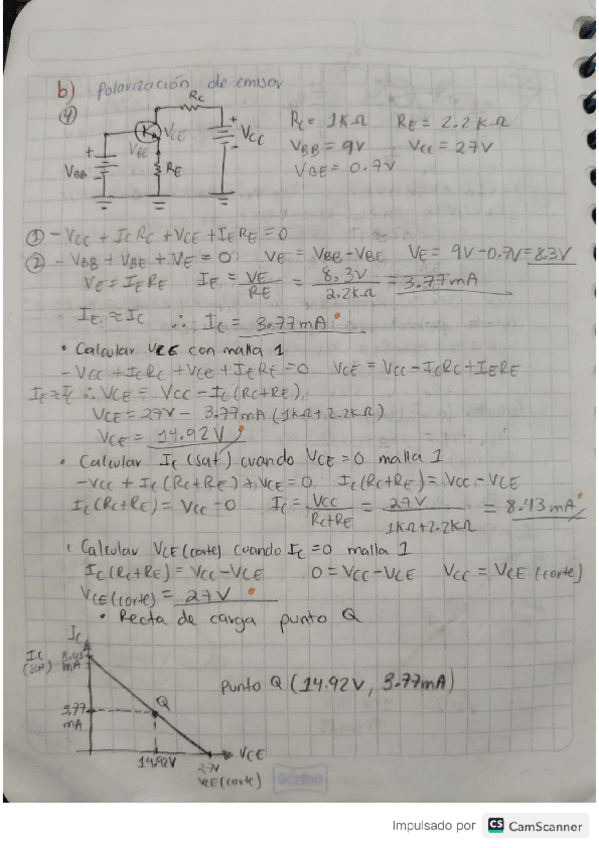 b) Polarización de emisor
④ Rc
VCE
VBE
+ VBB -
RE
+ VCC -
Rc= 1KΩ RE= 2.2KΩ
VBB= 9V Vcc= 27V
VBE= 0.7V
① -Vcc + IcRc + VCE + IERE = 0
② - VBB + VBE + VE = 0 VE = VBB-VBE VE= 9V-0.7V= 8.3V
VE= IERE IE = VE/RE = 8.3V/2.2KΩ = 3.77mA
IE ≈ Ic ∴ Ic = 3.77mA
• Calcular VCE con malla 1
-Vcc + IcRc + VCE + IERE = 0 VCE = Vcc - IcRc + IERE
IE≈Ic ∴ VCE = Vcc - Ic (Rc+RE)
VCE= 27V - 3.77mA (1KΩ+2.2KΩ)
VCE = 14.92V
• Calcular Ic (sat) cuando VCE=0 malla 1
-Vcc + Ic (Rc+RE) + VCE = 0 Ic(Rc+RE) = Vcc - VCE
Ic(Rc+RE) = Vcc - 0 Ic = Vcc/Rc+RE = 27V/1KΩ+2.2KΩ = 8.43mA
• Calcular VCE(corte) cuando Ic = 0 malla 1
Ic(Rc+RE) = Vcc - VCE 0 = Vcc - VCE Vcc = VCE (corte)
VCE(corte) = 27V
• Recta de carga punto Q
Ic
Ic (sat) 8.43 mA
Q
Punto Q (14.92V, 3.77mA)
3.77 mA
VCE
14.92V 27V
VCE(corte)
Scribe
Impulsado por CS CamScanner